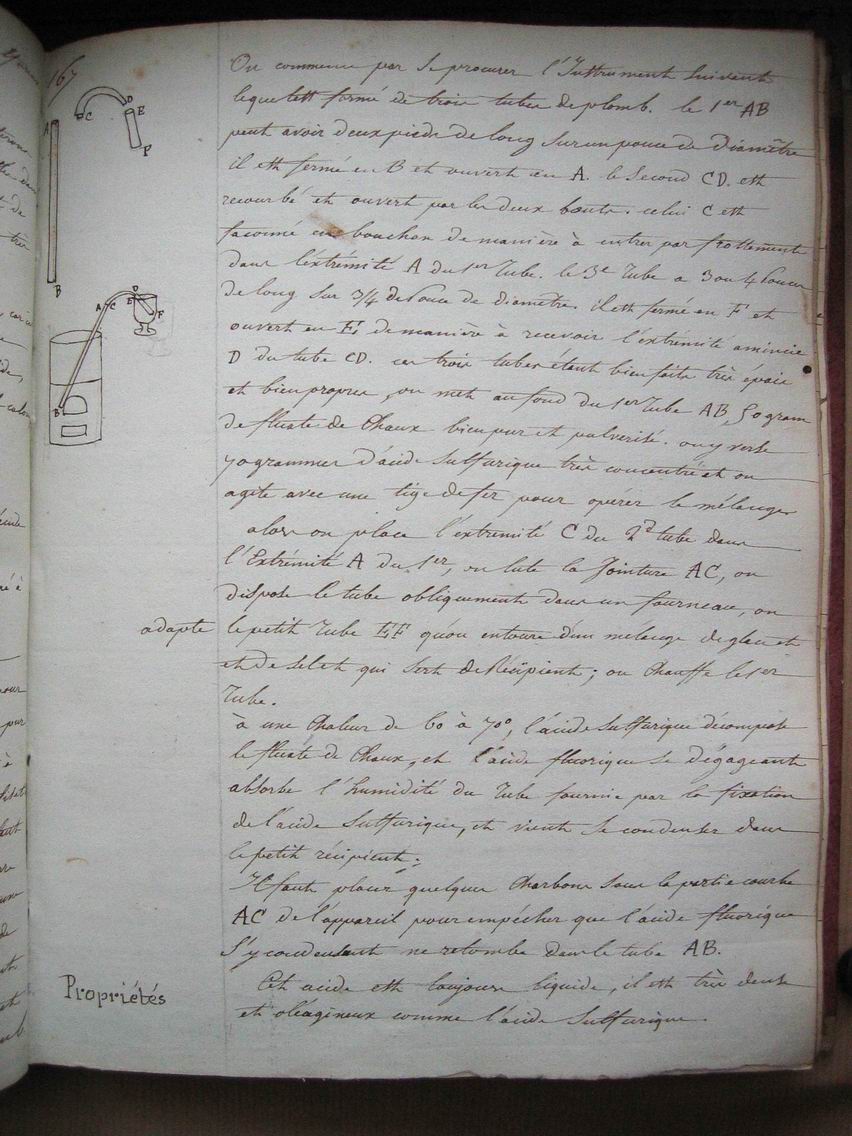 167
On commence par se procurer l'Instrument suivent
lequel est formé de trois tubes de plomb. le 1er AB
peut avoir deux pieds de long sur un pouce de Diamêtre
il est fermé en B et ouvert en A. le second CD. est
recourbé et ouvert par les deux bouts. celui C est
façonné en bouchon de manière à entrer par frottement
dans l'extrémité A du 1er Tube. le 3e Tube a 3 ou 4 Pouces
de long sur 3/4 de Pouce de diamètre. il est fermé en F et
ouvert en E, de manière à recevoir l'extrémité amincie
D du tube CD. ces trois tubes étant bien faits très épais
et bien propres, on met au fond du 1er Tube AB, 50 gram
de fluate de Chaux bien pur et pulverisé. on y verse
70 grammes d'acide Sulfurique très concentré et on
agite avec une tige de fer pour opérer le mélange
alors on place l'extremité C du 2d tube dans
l'Extrémité A du 1er, on lute la Jointure AC, on
dispose le tube obliquement dans un fourneau, on
adapte le petit Tube EF qu'on entoure d'un mélange de glace et
et de sel et qui sert de Récipient; on Chauffe le 1er
Tube.
à une Chaleur de 60 à 70°, l'acide Sulfurique décompose
le fluate de Chaux, et l'acide fluorique se dégageant
absorbe l'humidité du Tube fournie par la fixation
de l'acide Sulfurique, et vient se condenser dans
le petit récipient.
Il faut placer quelques Charbons sous la partie courbe
AC de l'appareil pour empécher que l'acide fluorique
s'y condensant ne retombe dans le tube AB.
Propriétés
Cet acide est toujours liquide, il est très dense
et oléagineux comme l'acide Sulfurique.
A
B
C
D
E
F
A
C
D
E
F
B